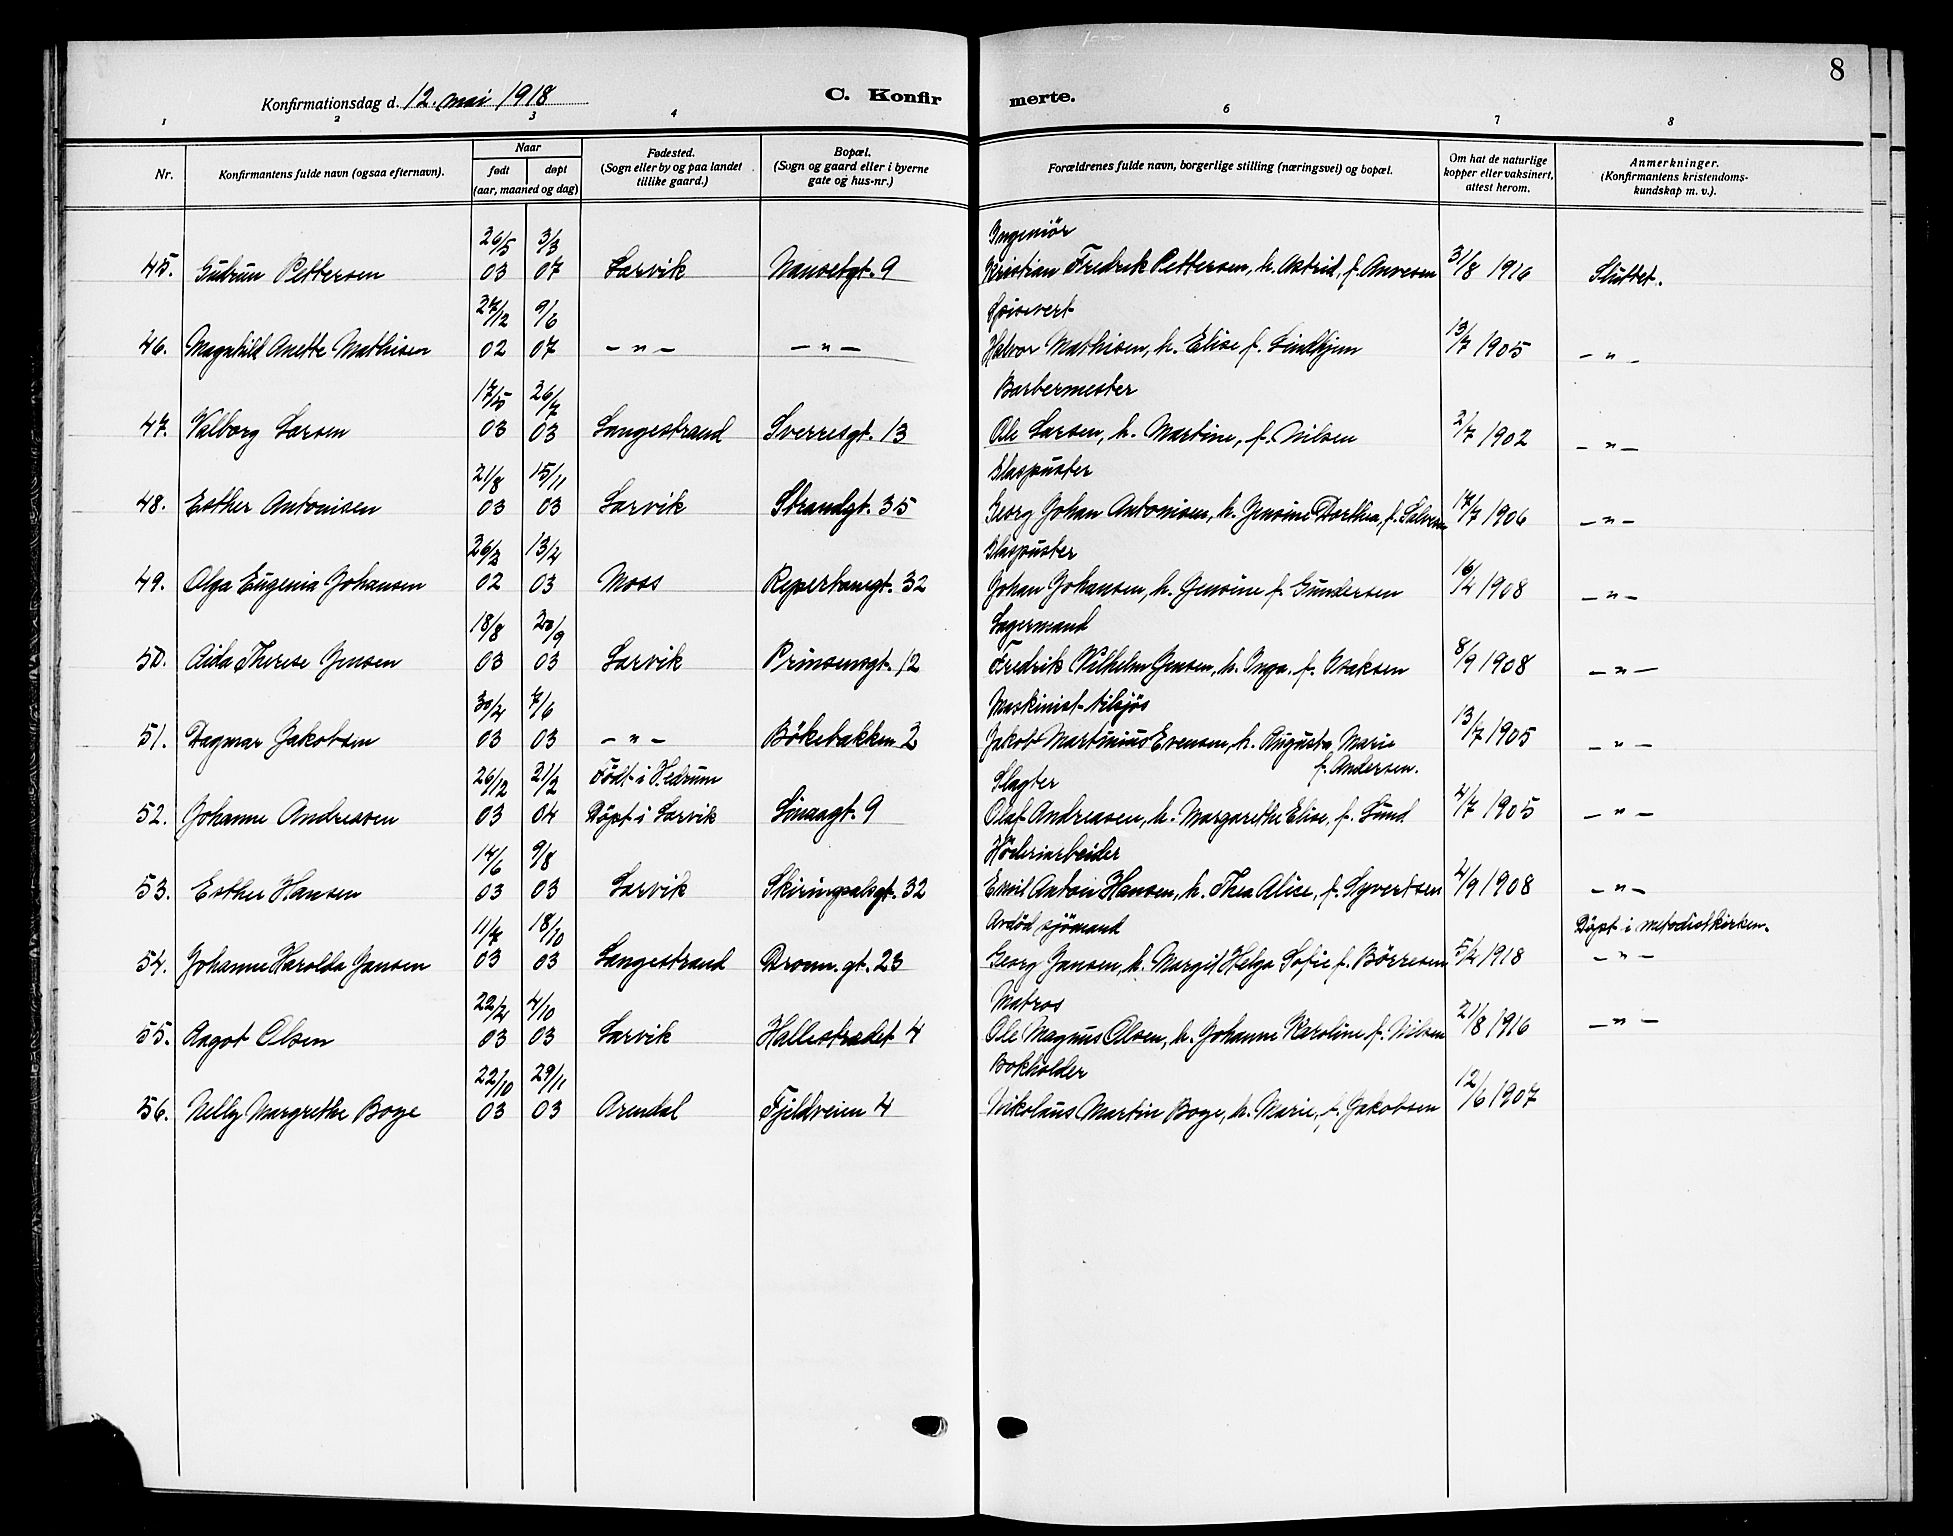 8
Konfirmationsdag d. 12. mai 1918 C. Konfir merte.
1 2 3 4 6 7 8
Nr. Konfirmantens fulde navn (ogsaa efternavn). Naar født døpt (aar, maaned og dag) Fødested. (Sogn eller by og paa landet tillike gaard.) Bopæl. (Sogn og gaard eller i byerne gate og hus-nr.) Forældrenes fulde navn, borgerlige stilling (næringsvei) og bopæl. Om hat de naturlige kopper eller vaksinert, attest herom. Anmerkninger. (Konfirmantens kristendoms-kundskap m. v.).
26/5 3/3 Ingeniør
45. Gudrun Pettersen 03 07 Larvik Nansetgt. 9 Kristian Fredrik Pettersen, h. Astrid, f. 31/8 1916 Sluttet.
27/12 9/6 Spisevert
46. Magnhild Anette Mathisen 02 07 — " — — " — Halvor Mathisen, h. Elise f. Lindhjem 13/7 1905 — " —
17/5 26/7 Barbermester
47. Valborg Larsen 03 03 Langestrand Sverresgt. 13 Ole Larsen, h. Martine, f. Nilsen 2/7 1902 — " —
21/8 15/11 Glaspuster
48. Esther Antonisen 03 03 Larvik Strandgt. 35 Georg Johan Antonisen, h. Jensine Dorthea, f. 17/7 1906 — " —
13/4 Glaspuster
49. Olga Eugenia Johansen 02 03 Moss Reperbansgt. 32 Johan Johansen, h. Jensine f. Gundersen 16/4 1908 — " —
18/8 20/9 Lagermand
50. Aida Therese Jensen 03 03 Larvik Prinsensgt. 12 Fredrik Vilhelm Jensen, h. Inga, f. Isaksen 8/9 1908 — " —
30/4 7/6 Maskinist tilsjøs
51. Dagmar Jakobsen 03 03 — " — Bökebakken 2 Jakob Martinius Evensen, h. Augusta Marie 13/7 1905 — " —
f. Andersen.
26/12 21/2 Födt i Hedrum Slagter
52. Johanne Andreasen 03 04 Döpt i Larvik 9 Olaf Andreasen, h. Margarethe Elise, f. Lund 4/7 1905 — " —
14/6 9/8
53. Esther Hansen 03 03 Larvik Skiringsalsgt. 32 Emil Anton Hansen, h. Thea Alise, f. Syvertsen 4/9 1908 — " —
11/7 18/10 Avdöd sjömand Döpt i metodistkirken.
54. Johanne Harolda Jansen 03 03 Langestrand Dronn. gt. 23 Georg Jansen, h. Margit Helga Sofie f. Börresen 5/4 1918 — " —
22/4 4/10 Matros
55. Aagot Olsen 03 03 Larvik Hallestredet 4 Ole Magnus Olsen, h. Johanne Karoline f. Nilsen 21/8 1916 — " —
22/10 29/11 Bokholder
56. Nelly Margrethe Boye 03 03 Arendal Fjeldveien 4 Nikolaus Martin Boye, h. Marie, f. Jakobsen 12/6 1907